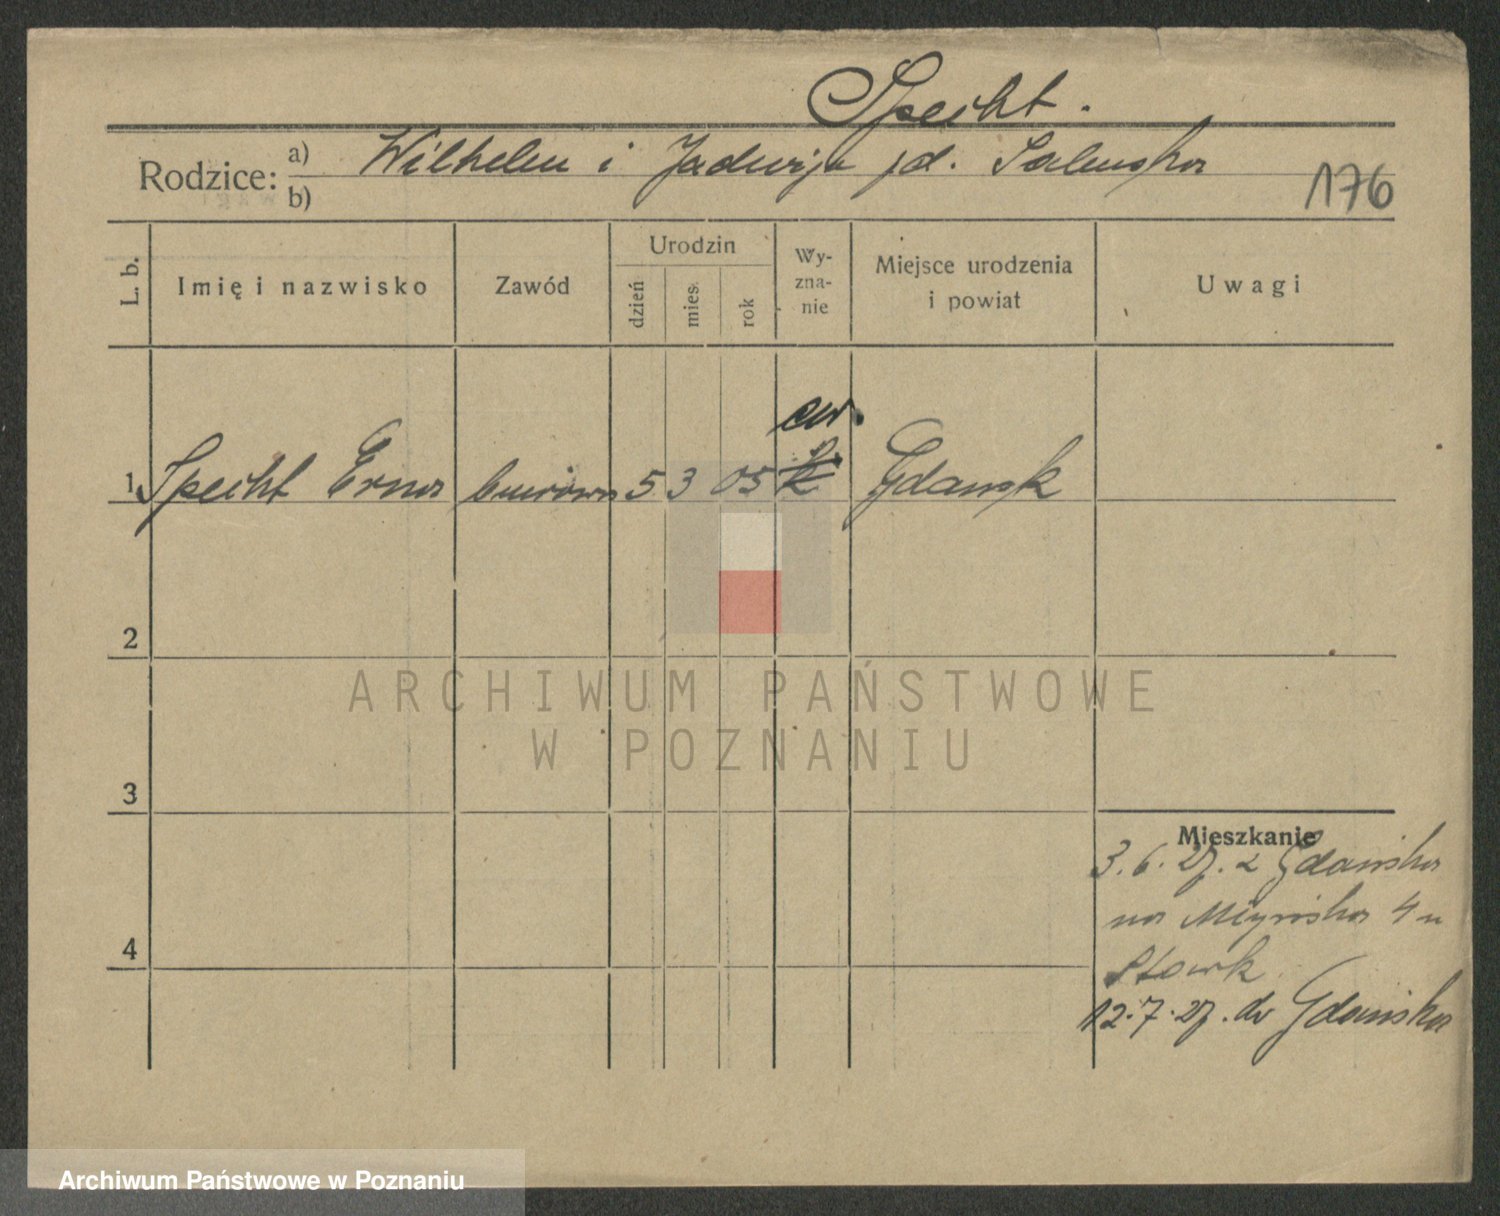 Specht.
Rodzice: a) Wilhelm i Jadwiga
b)
176
L. b. Imię i nazwisko Zawód Urodzin dzień mies. rok Wy-zna-nie Miejsce urodzenia i powiat Uwagi
ew.
1 Specht Erna biurowa 5 3 05 k Gdansk
2
3
4
Mieszkanie
3.6.27. z Gdańska
na Młyńska 4 u
12.7.27. do Gdańska
ARCHIWUM PAŃSTWOWE
W POZNANIU
Archiwum Państwowe w Poznaniu